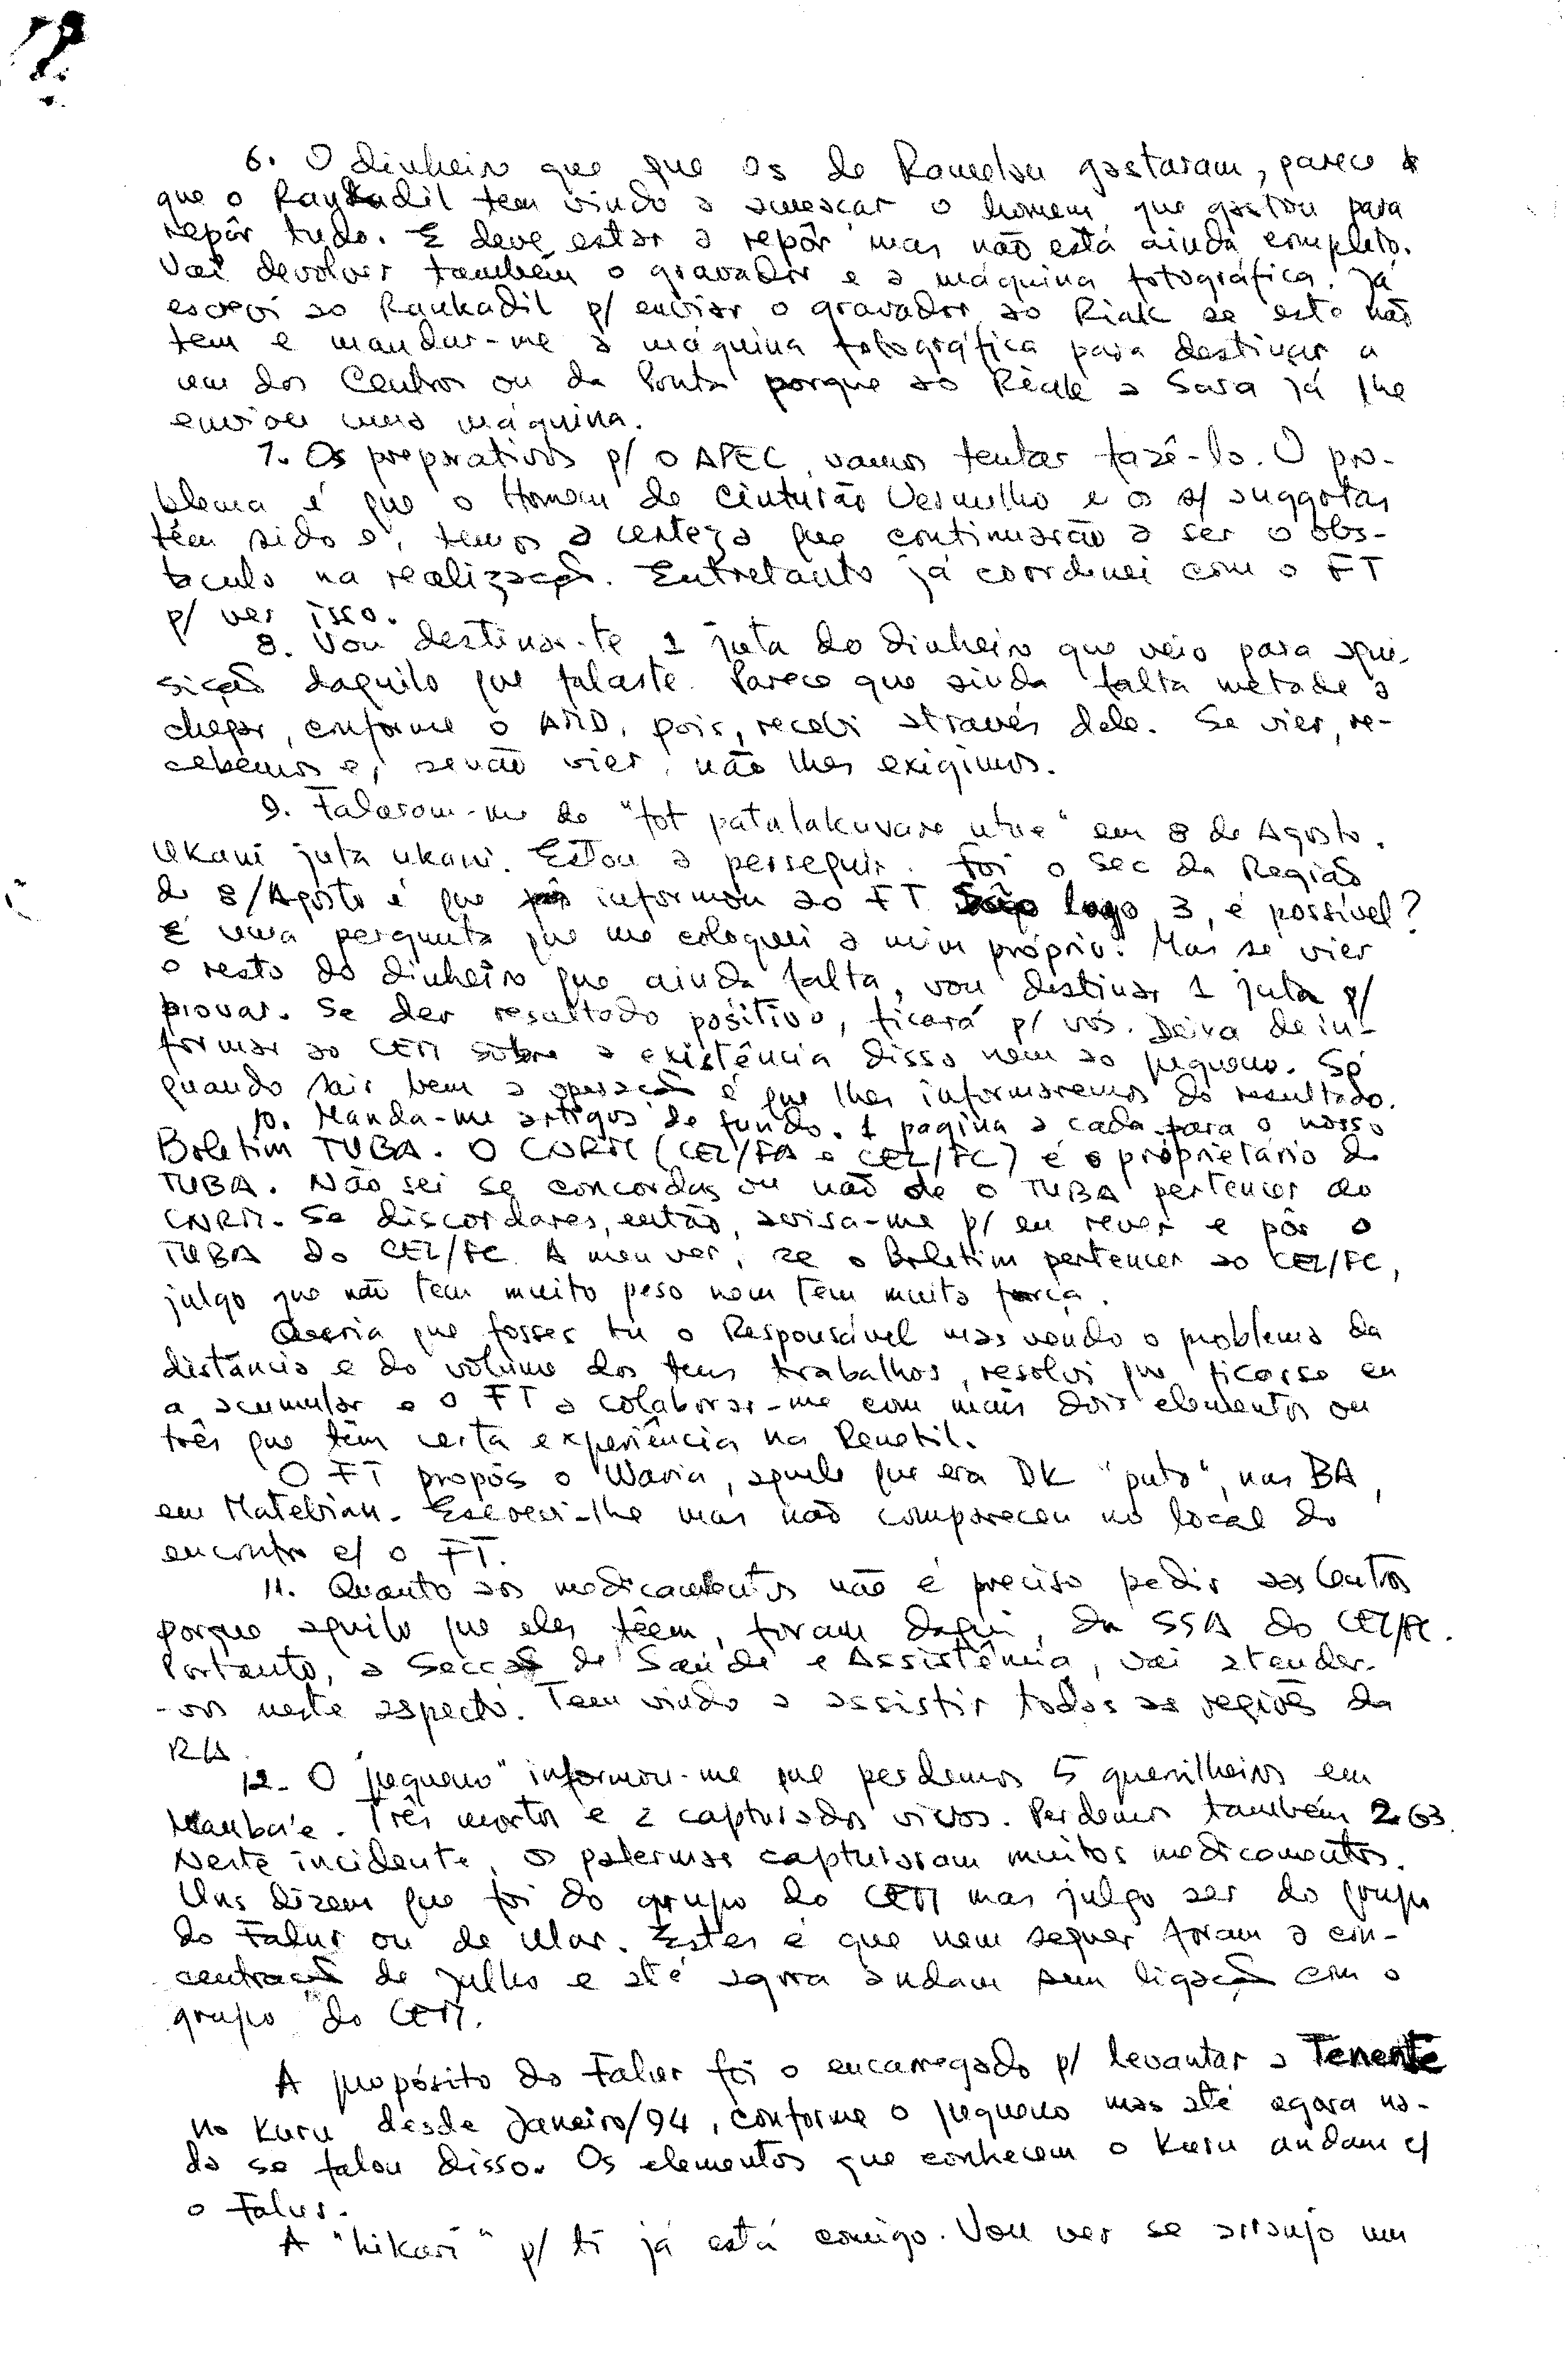 6. O dinheiro que que os de Ramelau gastaram, parece
que o Raukadil tem vindo a ameaçar o homem que gastou para
repôr tudo. E deve estar a repôr mas não está ainda completo.
Vai devolver também o gravador e a máquina fotográfica. Já
escrevi ao Raukadil p/ enviar o gravador ao Riak se este não
tem e mandar-me a máquina fotográfica para destinar a
um dos Centros ou da Ponta porque ao Riak a Sara já lhe
enviou uma máquina.
7. Os preparativos p/ o APEC, vamos tentar fazê-lo. O pro-
blema é que o Homem de Cinturão Vermelho e os s/
têm sido e, temos a certeza que continuarão a ser o obs-
táculo na realização. Entretanto já coordenei com o FT
p/ ver isso.
8. Vou destinar-te 1 juta do dinheiro que veio para aqui-
sição daquilo que falaste. Parece que ainda falta metade a
chegar, conforme o AMD, pois, recebi através dele. Se vier, re-
cebemos e, senão vier, não lhes exigimos.
9. Falaram-me do "fot patalakuvare utue" em 8 de Agosto.
Ukani juta ukani. Estou a perseguir. Foi o Sec da Região
de 8/Agosto é que informou ao FT. logo 3, é possível?
É uma pergunta que me coloquei a mim próprio. Mas se vier
o resto do dinheiro que ainda falta, vou destinar 1 juta p/
provar. Se der resultado positivo, ficará p/ vós. Deixa de in-
formar ao CEM sobre a existência disso nem ao pequeno. Só
quando sair bem a operação é que lhes informaremos do resultado.
10. Manda-me artigos de fundo. 1 pagina a cada para o nosso
Boletim TUBA. O CNRM (CEL/FA e CEL/FC) é o proprietário do
TUBA. Não sei se concordas ou não de o TUBA pertencer ao
CNRM. Se discordares, então, avisa-me p/ eu rever e pôr o
TUBA do CEL/FC. A meu ver, se o Boletim pertencer ao CEL/FC,
julgo que não tem muito peso nem tem muita força.
Queria que fosses tu o Responsável mas vendo o problema da
distância e do volume dos teus trabalhos, resolvi que ficasse eu
a acumular e o FT a colaborar-me com mais dois elementos ou
três que têm certa experiência na Renetil.
O FT propôs o Waria, aquele que era DK "puto", nas BA,
em Matebian. Escrevi-lhe mas não compareceu no local do
encontro c/ o FT.
11. Quanto aos medicamentos não é preciso pedir aos Centros
porque aquilo que eles têem, foram daqui, da SSA do CEL/FC.
Portanto, a Secção de Saúde e Assistência, vai atender-
-vos neste aspecto. Tem vindo a assistir todas as regiões da
RLA.
12. O "pequeno" informou-me que perdemos 5 guerrilheiros em
Manba'e. Três mortos e 2 capturados vivos. Perdemos também 2 G3.
Neste incidente, os palermas capturaram muitos medicamentos.
Uns dizem que foi do grupo do CEM mas julgo ser do grupo
do Falur ou de Ular. Estes é que nem sequer foram a con-
centração de Julho e até agora andam sem ligação com o
grupo do CEM.
A propósito do Falur foi o encarregado p/ levantar a Tenente
no Kuru desde Janeiro/94, conforme o pequeno mas até agora na-
da se falou disso. Os elementos que conhecem o Kuru andam c/
o Falur.
A "hikari" p/ ti já está comigo. Vou ver se arranjo um